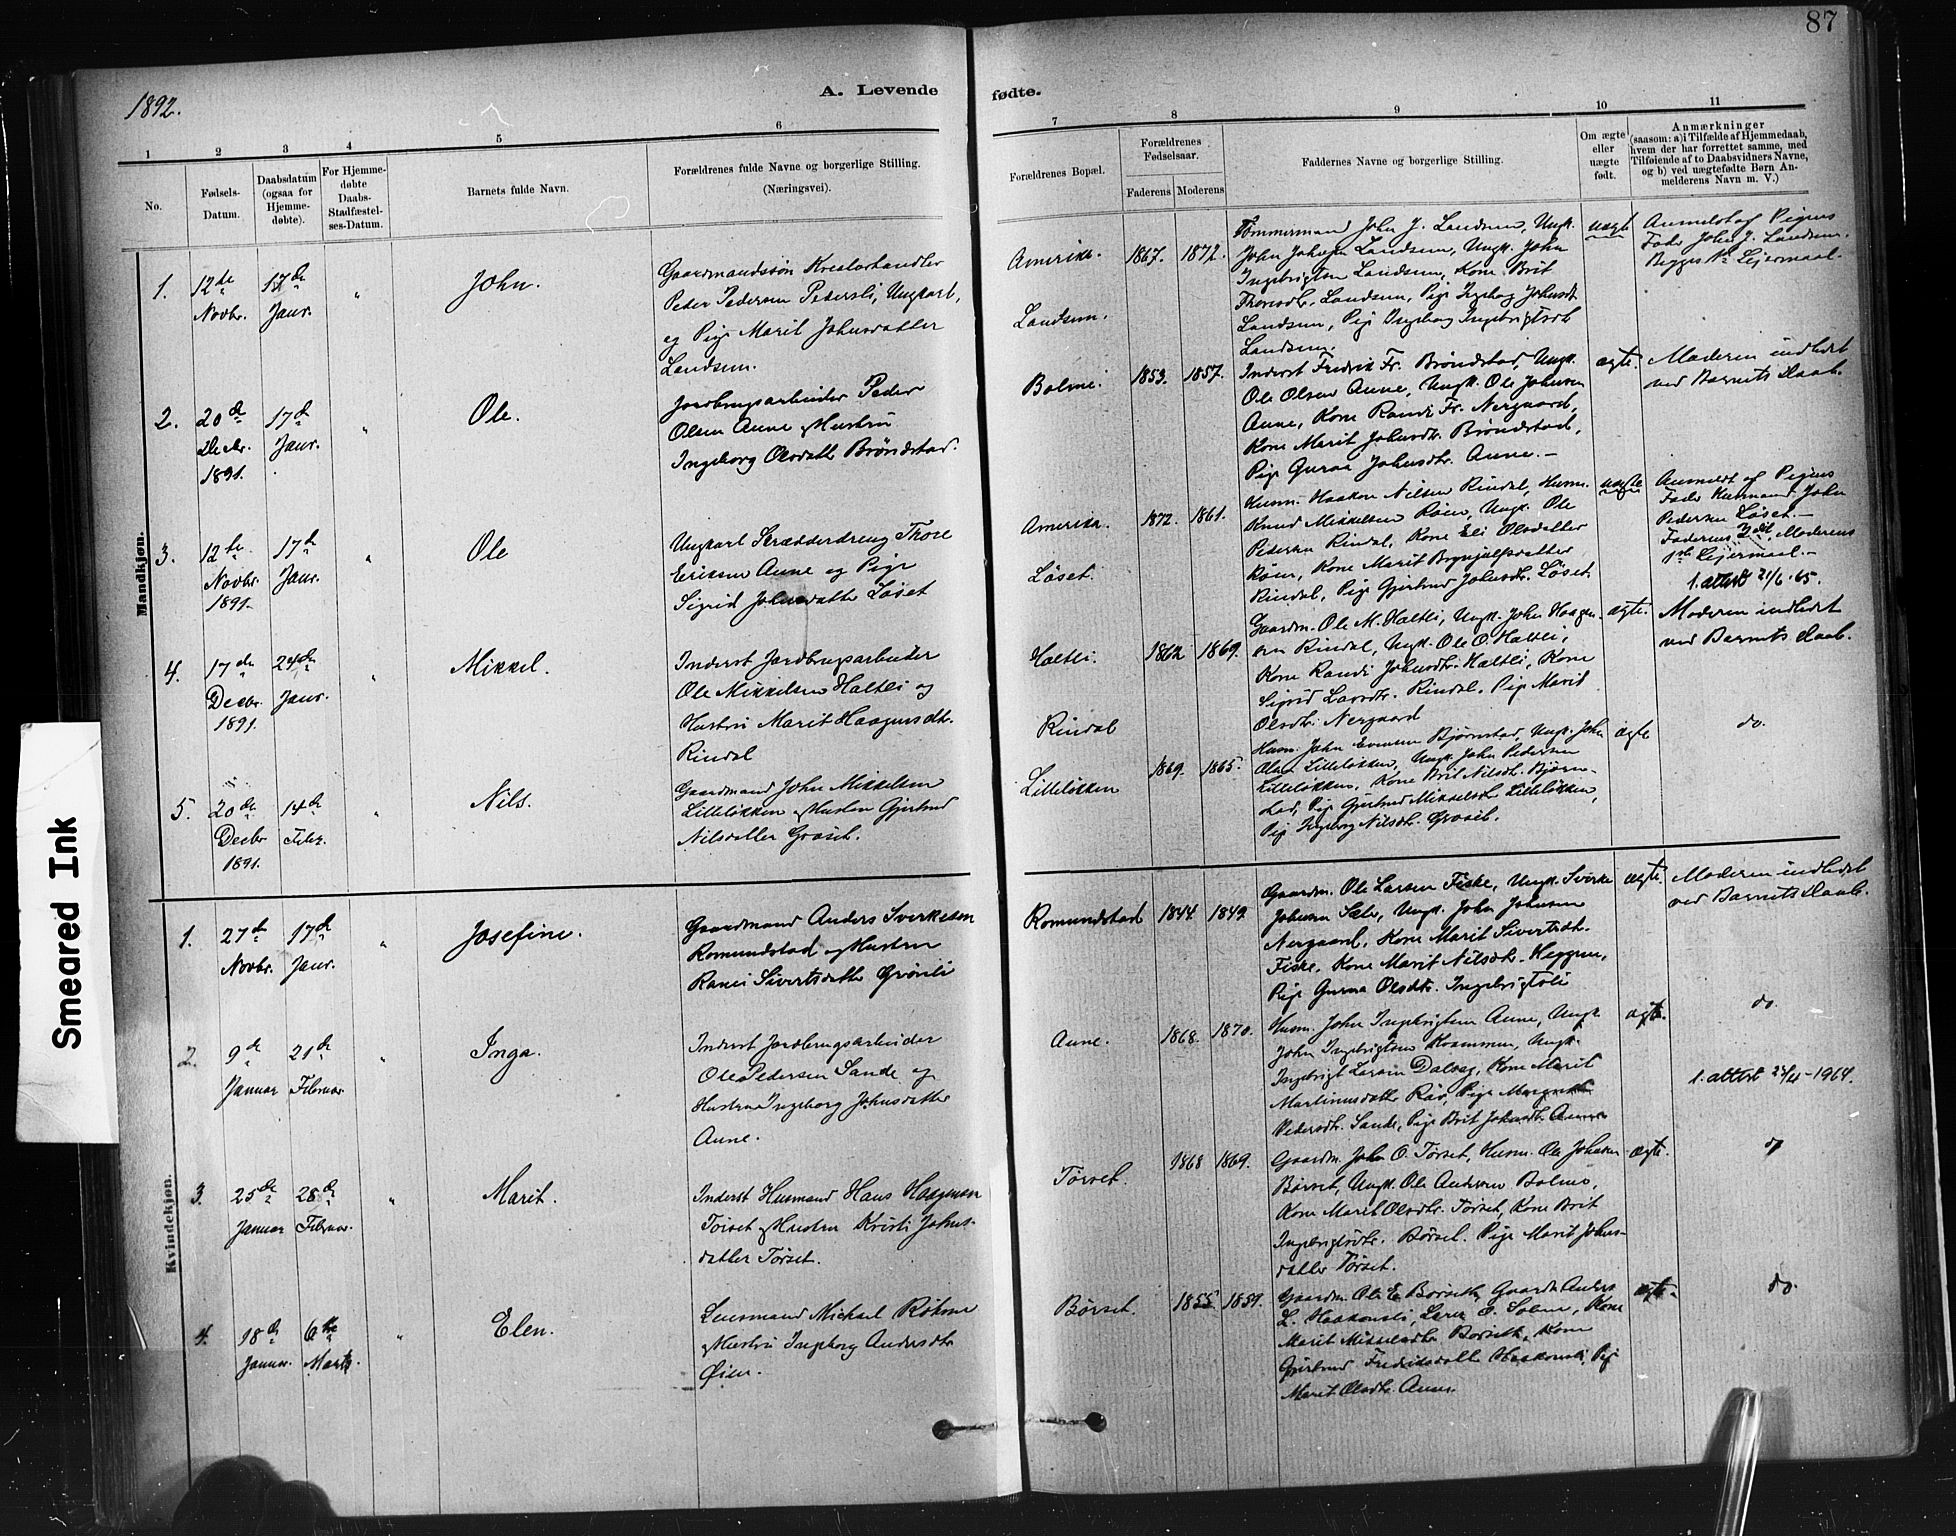 87
1892.
A. Levende
fødte.
1
2
3
4
5
6
7
8
9
10
11
No.
Fødsels-
Datum.
Daabsdatum
(ogsaa for
Hjemme-
døbte).
For Hjemme-
døbte
Daabs-
Stadfæstel-
ses-Datum.
Barnets fulde Navn.
Forældrenes fulde Navne og borgerlige Stilling.
(Næringsvei).
Forældrenes Bopæl.
Forældrenes
Fødselsaar.
Faderens
Moderens
Faddernes Navne og borgerlige Stilling.
Om ægte
eller
uægte
født.
Anmærkninger
(saasom: a) i Tilfælde af Hjemmedaab,
hvem der har forrettet samme, med
Tilføiende af to Daabsvidners Navne,
og b) ved uægtefødte Børn An-
melderens Navn m. V.)
Mandkjøn.
1.
12te
Novbr.
17de
Janr.
"
John.
Gaardmandssøn Kreaturhandler
Peder Pedersen Pedersli, Ungkarl,
og Pige Marit Johnsdatter
Landsem.
Amerika.
Landsem.
1867.
1872.
Tømmermand John J. Landsem, Ungk.
John Johnsen Landsem, Ungk. John
Ingebrigtsen Landsem, Kone Brit
Thoresdtr. Landsem, Pige Ingebog Johnsdt
Landsem, Pige Ingeborg Ingebrigtsdt
Landsem.
uægte
Anmeldt af Pigens
Fader John J. Landsem.
Begges 1ste Leiermaal.
2.
20de
Decbr.
1891.
17de
Janr.
"
Ole.
Jordbrugsarbeider Peder
Olsen Aune og Hustru
Ingeborg Olsdatter Brøndstad.
Bolme.
1853.
1857.
Inderst Fredrik Fr. Brøndstad, Ungk.
Ole Olsen Aune, Ungk. Ole Johnsen
Aune, Kone Randi Fr. Nergaard,
Kone Marit Johnsdtr. Brøndstad,
Pige Guraa Johnsdtr. Aune. -
ægte.
Moderen indledet
ved Barnets Daab.
3.
12te
Novbr.
1891.
17de
Janr.
"
Ole
Ungkarl Skrædderdreng Thore
Eriksen Aune og Pige
Sigrid Johnsdatter Løset
Amerika.
Løset.
1872.
1861.
Husm. Haakon Nilsen Rindal, Husm.
Knud Mikkelsen Røen, Ungk. Ole
Pedersen Rindal, Kone Eli Olsdatter
Røen, Kone Marit Brynjulfsdatter
Rindal, Pige Gjertrud Johnsdtr. Løset.
uægte
Anmeldt af Pigens
Fader Husmand John
Pedersen Løset. -
Faderens 2det, Moderens
1ste Leiermaal. -
1. attest 21/6 -65.
4.
17de
Decbr.
1891.
24de
Janr.
"
Mikkel.
Inderst Jordbrugsarbeider
Ole Mikkelsen Haltli og
Hustru Marit Haagensdtr.
Rindal
Haltli.
Rindal
1862
1869.
Gaardm. Ole M. Haltli, Ungk. John Haagen-
sen Rindal, Ungk. Ole O. Haltli,
Kone Randi Johnsdtr. Haltli, Kone
Sigrid Larsdtr. Rindal, Pige Marit
Olsdtr. Nergaard
ægte.
Moderen indledet
ved Barnets Daab.
5.
20de
Decbr
1891.
14de
Febr.
"
Nils.
Gaardmand John Mikkelsen
Lilleløkken og Hustru Gjertrud
Nilsdatter Graset.
Lilleløkken
1869.
1865.
Husm. John Evensen Bjørnstad, Ungk. John
Olsen Lilleløkken, Ungk. John Pedersen
Lilleløkken, Kone Brit Nilsdt. Bjørn-
stad, Pige Gjertrud Mikkelsdt. Lilleløkken,
Pige Ingeborg Nilsdtr. Graset.
ægte
do.
Kvindekjøn.
1.
27de
Novbr.
17de
Janr.
"
Josefine.
Gaardmand Anders Sverkesen
Romundstad og Hustru
Ranei Sivertsdatter Grønli
Romundstad
1844.
1849.
Gaardm. Ole Larsen Fiske, Ungk. Sverke
Johnsen Sæter, Ungk. John Johnsen
Nergaard, Kone Marit Sivertsdt.
Fiske, Kone Marit Nilsdtr. Heggem,
Pige Guraa Olsdtr. Ingebrigtsli
ægte.
Moderen indledet
ved Barnets Daab.
2.
9de
Januar
21de
Februar
"
Inga.
Inderst Jordbrugsarbeider
Ole Pedersen Sande og
Hustru Ingeborg Johnsdatter
Aune.
Aune.
1868.
1870.
Husm. John Ingebrigtsen Aune, Ungk.
John Ingebrigtsen Kvammen, Ungk.
Ingebrigt Larsen Dalseg, Kone Marit
Martinusdatter Røv, Pige Margrethe
Pedersdtr. Sande, Pige Brit Johnsdtr. Aune
ægte.
do.
1. attest 24/4-1964.
3.
25de
Januar
28de
Februar.
"
Marit.
Inderst Husmand Hans Haagensen
Tørset og Hustru Kristi Johns-
datter Tørset.
Tørset.
1868
1869.
Gaardm. John O. Tørset, Husm. Ole Johnsen
Børset, Ungk. Ole Andersen Bolme,
Kone Marit Olsdtr. Tørset, Kone Brit
Ingebrigtsdtr. Børset, Pige Marit Johns-
datter Tørset.
ægte.
do
4.
18de
Januar.
6te
Marts.
"
Elen.
Lensmand Michael Røhme
og Hustru Ingeborg Andersdtr.
Øien.
Børset.
1855
1859.
Gaardm. Ole E. Børseth, Gaardm. Anders
L. Haakonsli, Lærer O. Solem, Kone
Marit Mikkelsdtr. Børseth, Kone
Gjertrud Fredriksdatter Haakonsli, Pige
Marit Olsdtr. Aune.
ægte.
do.
Smeared Ink